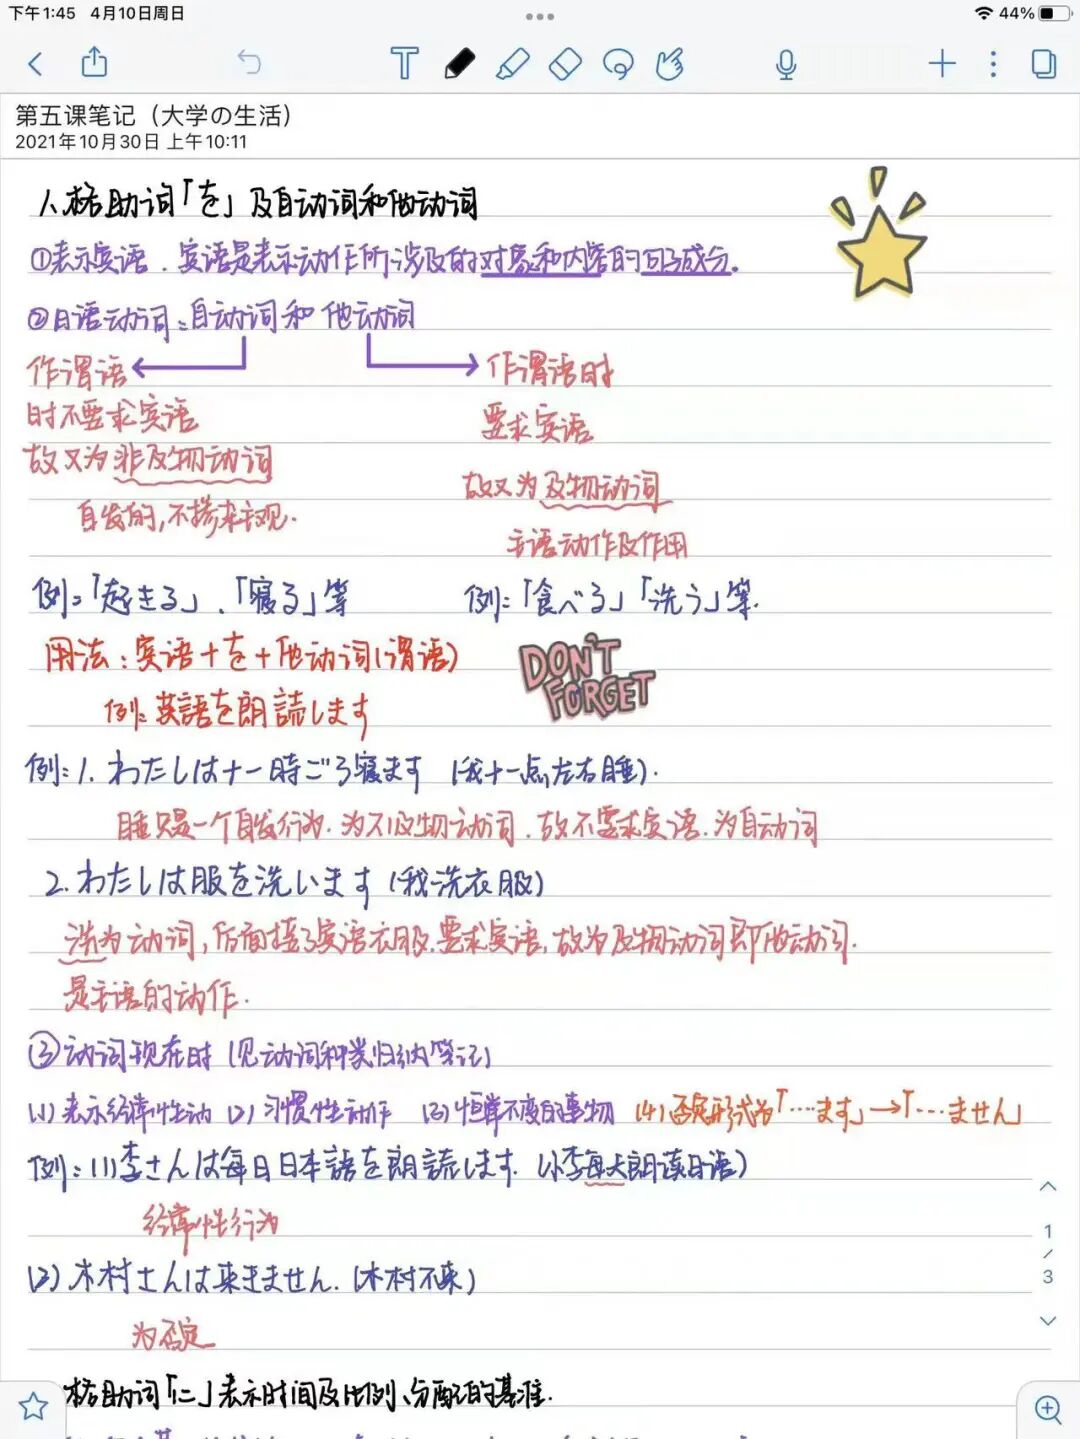 下午1:45 4月10日周日
44%
第五课笔记（大学の生活）
2021年10月30日 上午10:11
1、格助词「を」及自动词和他动词
①表示宾语．宾语是表示动作所涉及的对象和内容的句子成分。
②日语动词：自动词和他动词
作谓语
时不要求宾语
故又为非及物动词
自发的，不掺杂主观．
作谓语时
要求宾语
故又为及物动词
主语动作及作用
例：「起きる」、「寝る」等
例：「食べる」「洗う」等．
用法：宾语＋を＋他动词（谓语）
DON'T FORGET
例：英語を朗読します
例：1. わたしは十一時ごろ寝ます（我十一点左右睡）．
睡只是一个自发行为．为不及物动词．故不要求宾语．为自动词
2. わたしは服を洗います（我洗衣服）
洗为动词，后面接了宾语衣服．要求宾语，故为及物动词即他动词．
是主语的动作．
③动词现在时（见动词种类归纳笔记）
(1)表示经常性动 (2)习惯性动作 (3)恒常不变的事物 (4)否定形式为「……ます」→「……ません」
例：(1)李さんは毎日日本語を朗読します．（小李每天朗读日语）
经常性行为
(2)木村さんは来きません．（木村不来）
为否定
格助词「に」表示时间及比例、分配的基准．
1/3